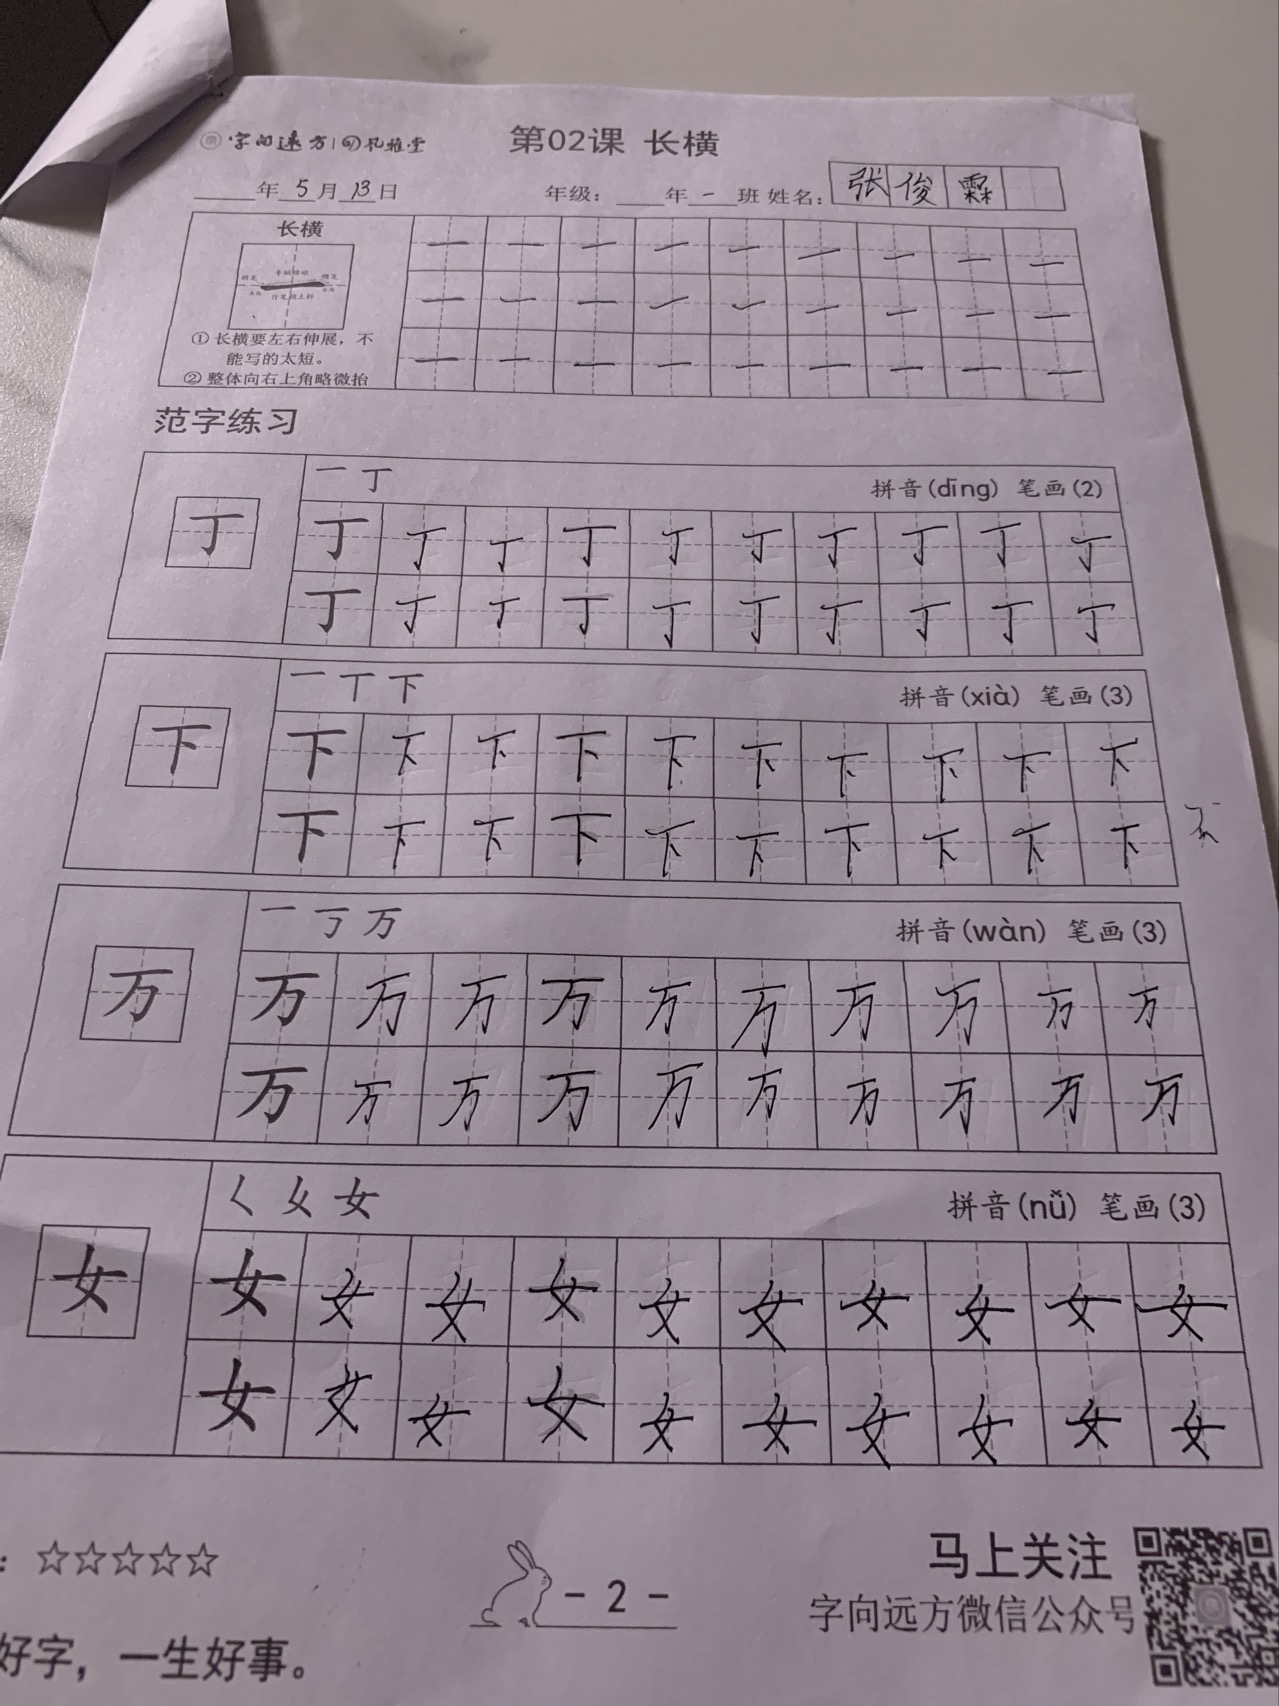 字向远方 风雅堂 第02课 长横
年 5 月 13 日 年级： 年 一 班 姓名： 张俊霖
长横
一 一 一 一 一 一 一 一 一
一 一 一 一 一 一 一 一 一
一 一 一 一 一 一 一 一 一
① 长横要左右伸展，不
能写的太短。
② 整体向右上角略微抬
范字练习
一 丁 拼音(dīng) 笔画(2)
丁
丁 丁 丁 丁 丁 丁 丁 丁 丁 丁
丁 丁 丁 丁 丁 丁 丁 丁 丁 丁
一 丅 下 拼音(xià) 笔画(3)
下
下 下 下 下 下 下 下 下 下 下
下 下 下 下 下 下 下 下 下 下
一 丂 万 拼音(wàn) 笔画(3)
万
万 万 万 万 万 万 万 万 万 万
万 万 万 万 万 万 万 万 万 万
𡿨 女 拼音(nǚ) 笔画(3)
女
女 女 女 女 女 女 女 女 女 女
女 女 女 女 女 女 女 女 女 女
：☆☆☆☆☆
- 2 -
马上关注
字向远方微信公众号
好字，一生好事。